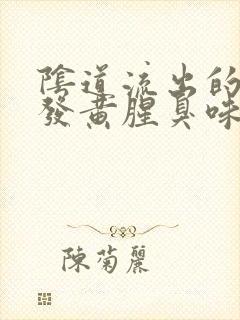 陰道流出的
發黃腥臭味
陳菊麗